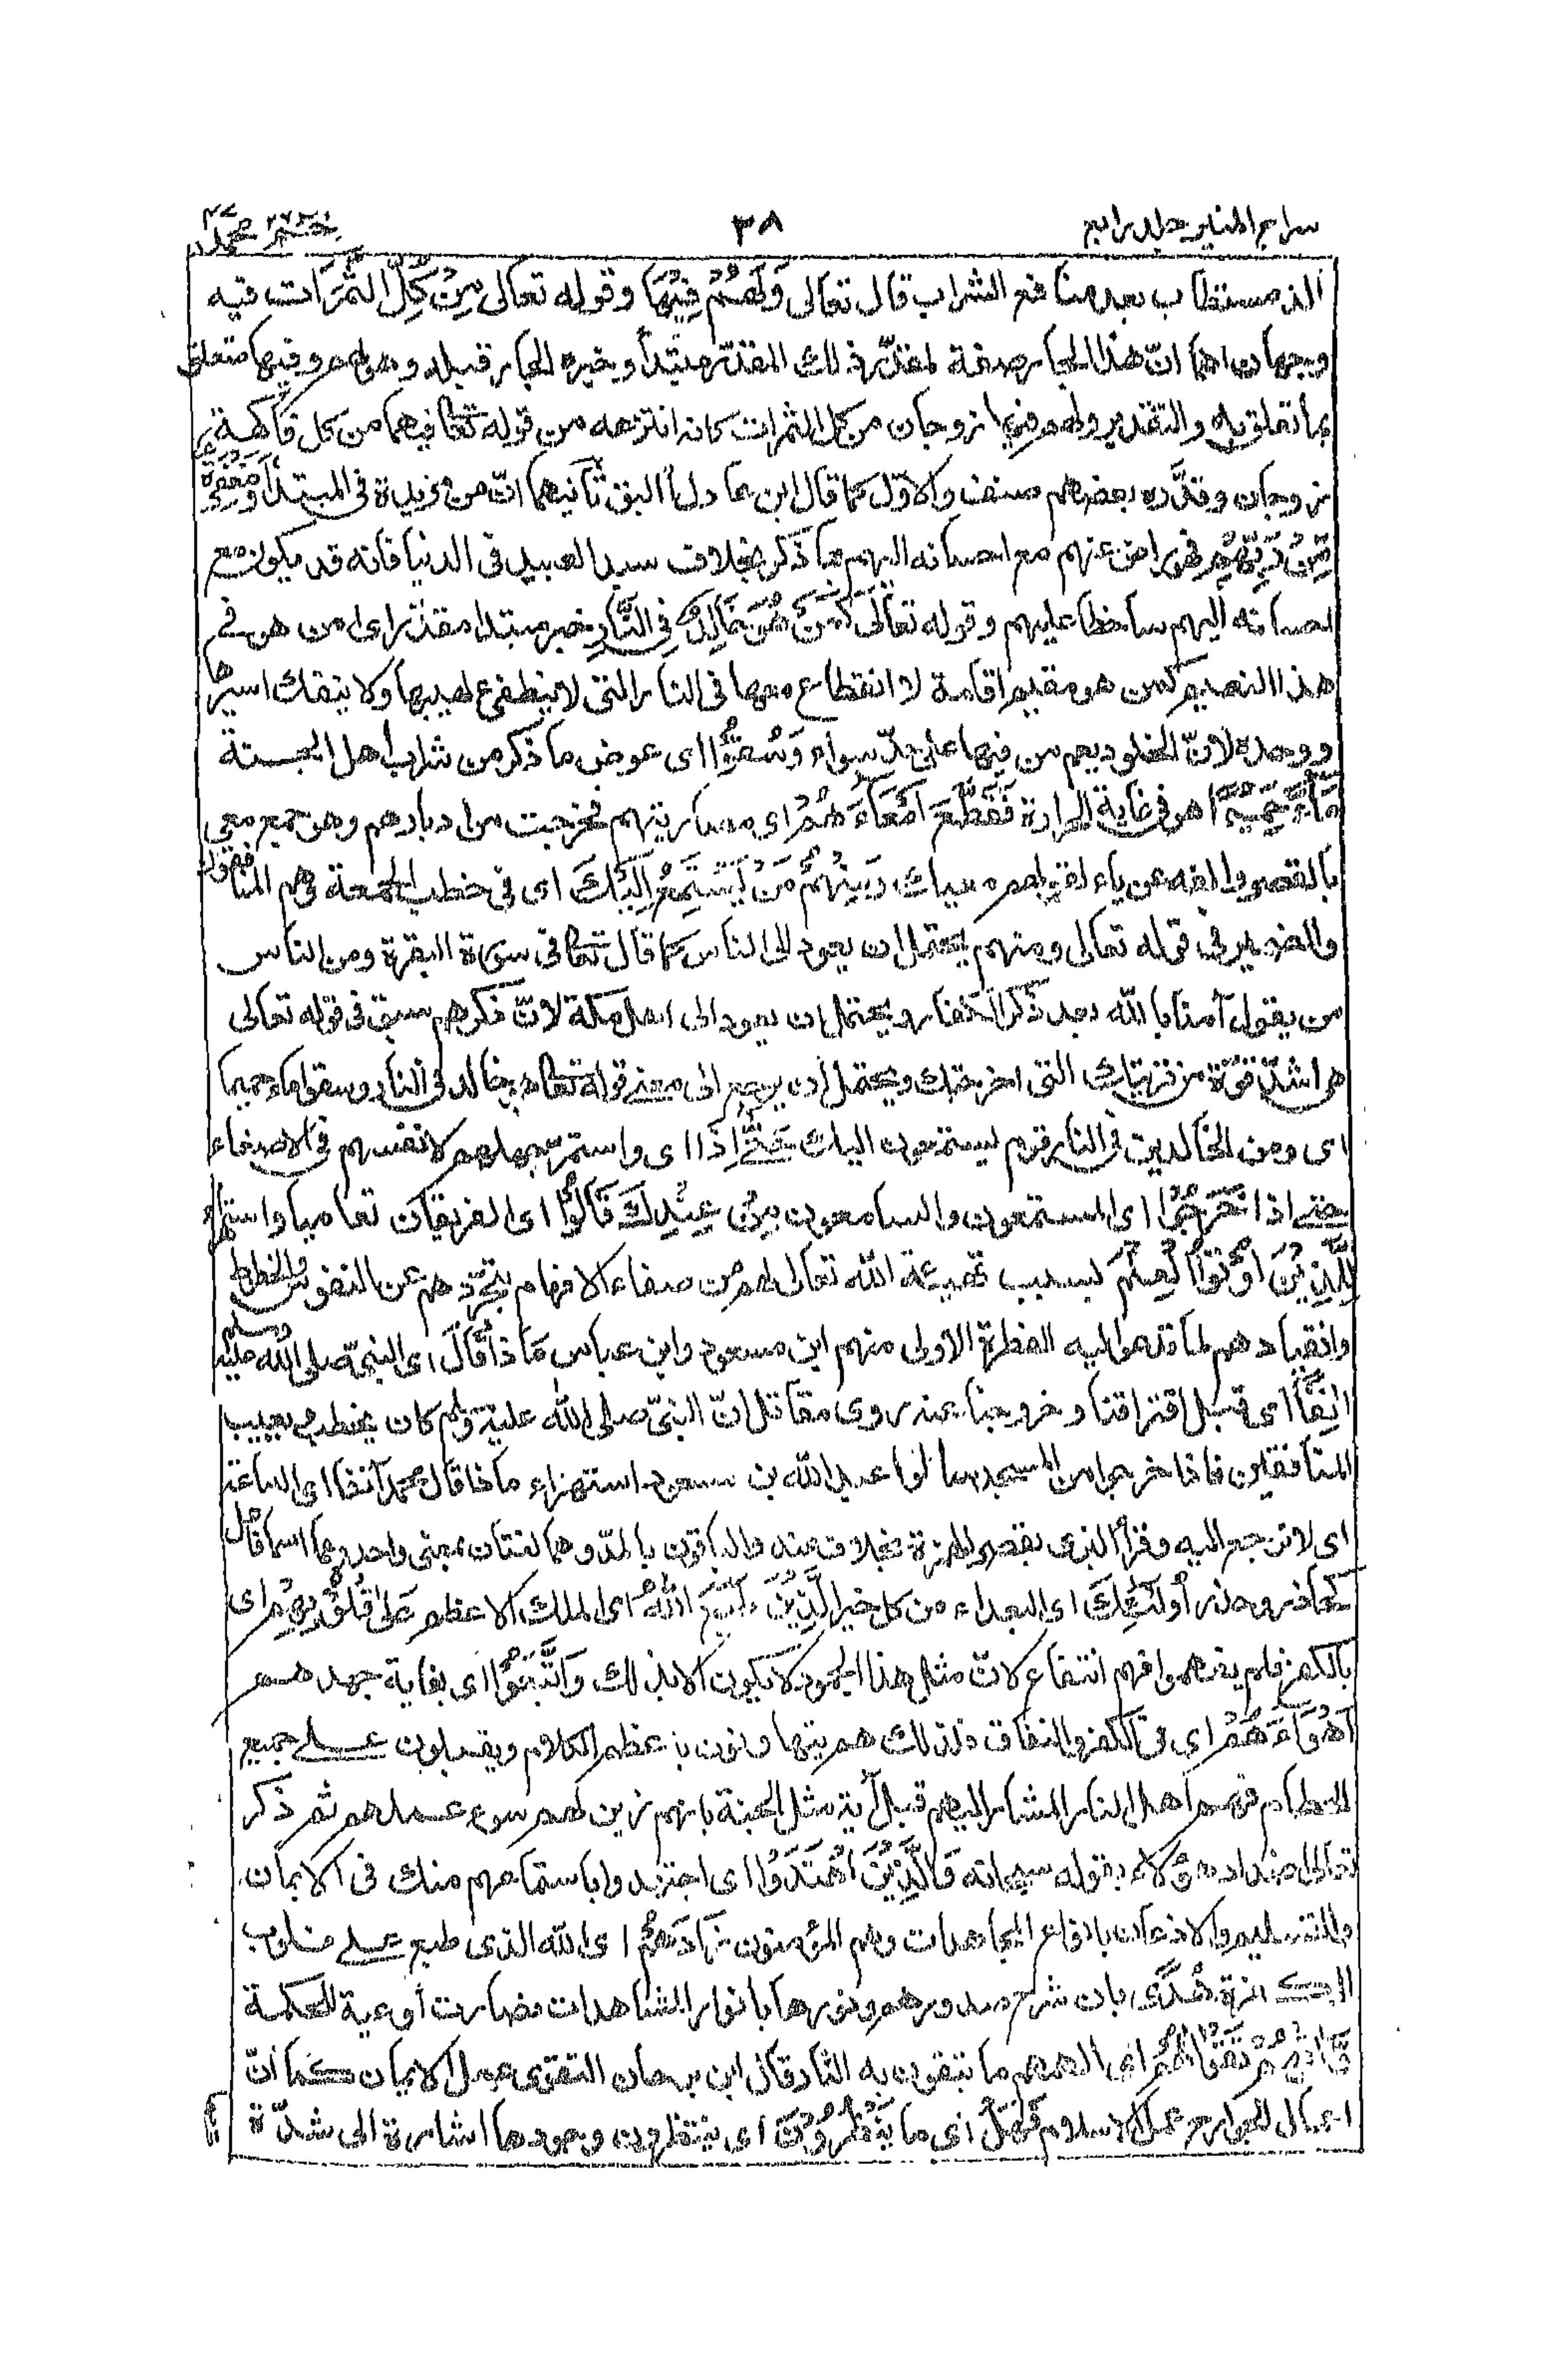 سراج المنير جلد رابع
٣٨
حٰمٓ ٢٦ محمد ٤٧
الذ مستطاب بعد منافع الشراب قال تعالى وَلَهُمْ فِيْهَا وقوله تعالى مِنْ كُلِّ الثَّمَرَاتِ فيه
وجهان احدهما انّ هذا الجار صفة لمقدّر ذلك المقدّر مبتدأ وخبره الجار قبله وهو لهم وفيها متعلق
بما تعلق به والتقدير ولهم فيها زوجان من كل الثمرات كانه انتزعه من قوله تعالى فيهما من كل فاكهة
زوجان وقدّره بعضهم صنف والاوّل كما قال ابن عادل اليق ثانيهما انّ من مزيدة فى المبتدأ وَمَغْفِرَةٌ
مِّنْ رَّبِّهِمْ فهو راض عنهم مع احسانه اليهم بما ذكر بخلاف سيد العبيد فى الدنيا فانه قد يكون مع
احسانه اليهم ساخطا عليهم وقوله تعالى كَمَنْ هُوَ خَالِدٌ فِى النَّارِ خبر مبتدا مقدّر اى امن هو فى
هذا النعيم كمن هو مقيم اقامة لا انقطاع معها فى النار التى لا ينطفئ لهيبها ولا ينفك اسيرها
ووحده لانّ الخلود يعم من فيها على حدّ سواء وَسُقُوْا اى عوض ما ذكر من شراب اهل الجنة
مَآءً حَمِيْمًا هو فى غاية الحرارة فَقَطَّعَ اَمْعَآءَهُمْ اى مصارينهم فخرجت من ادبارهم وهو جمع معى
بالقصر والفه عن ياء لقولهم معيان وَمِنْهُمْ مَّنْ يَّسْتَمِعُ اِلَيْكَ اى فى خطب الجمعة وهم المنافقون
والضمير فى قوله تعالى ومنهم يحتمل ان يعود الى الناس كما قال تعالى فى سورة البقرة ومن الناس
من يقول آمنا بالله بعد ذكر الكفار ويحتمل ان يعود الى اهل مكة لانّ ذكرهم سبق فى قوله تعالى
هى اشدّ قوّة من قريتك التى اخرجتك ويحتمل ان يرجع الى معنى قوله تعالى هو خالد فى النار وسقوا ماء حميما
اى ومن الخالدين فى النار قوم يستمعون اليك حَتّٰى اِذَا اى واستمرّ جهلهم لانفسهم فى الاصغاء
حتى اذا خَرَجُوْا اى المستمعون والسامعون مِنْ عِنْدِكَ قَالُوْا اى الفريقان تعاميا واستهزاء
لِلَّذِيْنَ اُوْتُوا الْعِلْمَ بسبب تهيئة الله تعالى لهم من صفاء الافهام بتجرّدهم عن النفوس والحظوظ
وانقيادهم لما تدعوا ليه الفطرة الاولى منهم ابن مسعود وابن عباس مَاذَا قَالَ اى النبيّ صلى الله عليه وسلم
اٰنِفًا اى قبل افتراقنا وخروجنا عنه روى مقاتل انّ النبيّ صلى الله عليه وسلم كان يخطب ويعيب
المنافقين فاذا خرجوا من المسجد سألوا عبد الله بن مسعود استهزاء ماذا قال محمد آنفا اى الساعة
اى لا نرجع اليه وقرأ البزى بقصر الهمزة بخلاف عنه والباقون بالمدّ وهما لغتان بمعنى واحد وهما اسما فاعل
كحاذر وحذر اُولٰٓئِكَ اى البعداء من كل خير الَّذِيْنَ طَبَعَ اللّٰهُ اى الملك الاعظم عَلٰى قُلُوْبِهِمْ اى
بالكفر فلم يفهموا فهم انتفاع لانّ مثل هذا الجمود لا يكون الا بذلك وَاتَّبَعُوْا اى بغاية جهدهم
اَهْوَآءَهُمْ اى فى الكفر والنفاق فلذلك هم يتهاونون باعظم الكلام ويقبلون على جميع
الحطام فهم اهل النار المشار اليهم قبل آية مثل الجنة بانهم زين لهم سوء عملهم ثم ذكر
تعالى اضداد هؤلاء بقوله سبحانه وَالَّذِيْنَ اهْتَدَوْا اى اجتهدوا باستماعهم منك فى الايمان
والتسليم والاذعان بانواع المجاهدات وهم المؤمنون زَادَهُمْ اى الله الذى طبع على قلوب
الكفرة هُدًى بان شرح صدورهم ونورها بانوار المشاهدات فصارت أوعية للحكمة
وَّاٰتٰهُمْ تَقْوٰهُمْ اى الهمهم ما يتقون به النار قال ابن برجان التقوى عمل الايمان كما أنّ
اعمال الجوارح عمل الاسلام فَهَلْ اى ما يَنْظُرُوْنَ اى ينتظرون وجودها اشارة الى شدّة